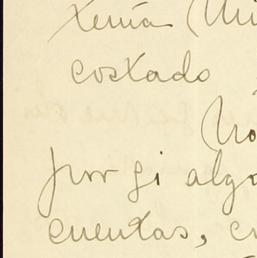 xemà (Mi
costado
No
por si algo
cuentas, c